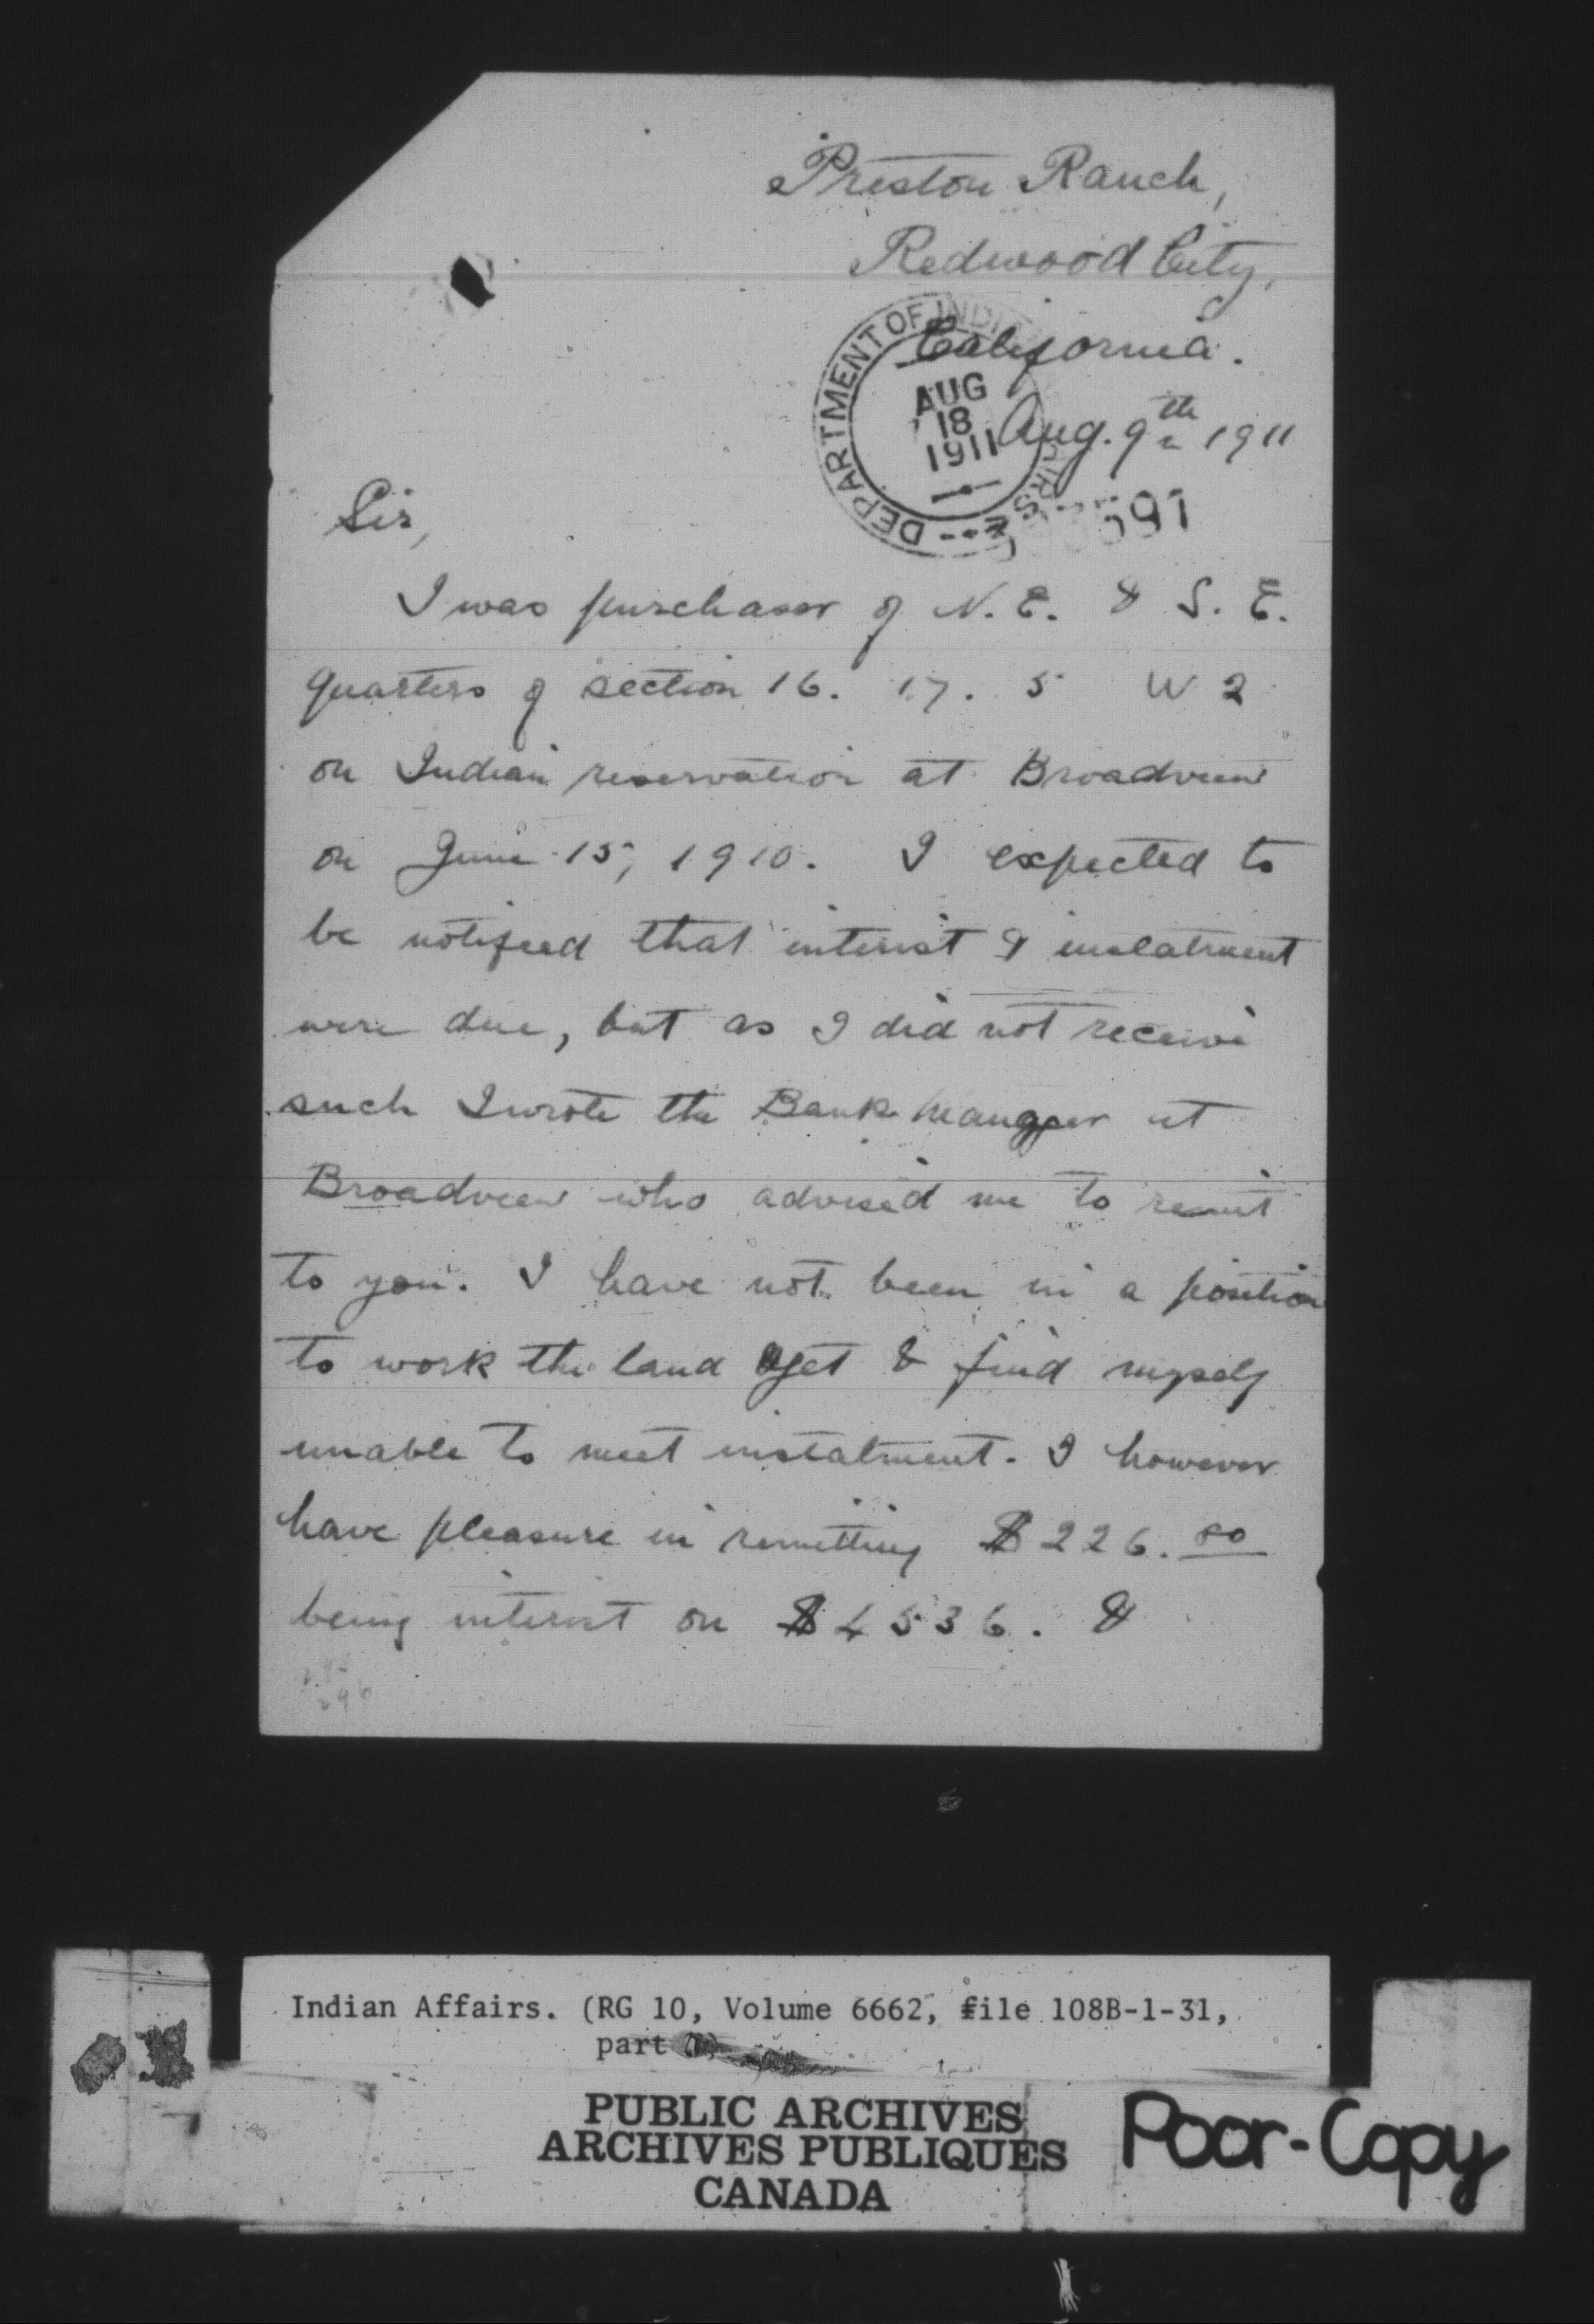 Preston Ranch,
Redwood City,
California.
DEPARTMENT OF INDI
AUG
18
1911
Aug. 9th 1911
591
Sir,
I was purchaser of N. E. & S. E.
quarters of section 16. 17. 5 W 2
on Indian reservation at Broadview
on June 15, 1910. I expected to
be notified that interest & instalment
were due, but as I did not receive
such I wrote the Bank Manager at
Broadview who advised me to remit
to you. I have not been in a position
to work the land yet & find myself
unable to meet instalment. I however
have pleasure in remitting $226.80
being interest on $4536. &
Indian Affairs. (RG 10, Volume 6662, file 108B-1-31,
part
PUBLIC ARCHIVES
ARCHIVES PUBLIQUES
CANADA
Poor-Copy